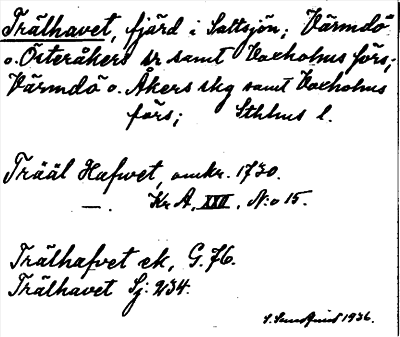 Trälhavet, fjärd i Saltsjön; Värmdö
o. Österåkers sr samt Vaxholms förs;
Värmdö o. Åkers skg samt Vaxholms
förs; Sthlms l.
Trääl Hafwet, omkr. 1730.
—. Kr A, XXII, N:o 15.
Trälhafvet ek, G. 76.
Trälhavet Sj: 234.
1936.